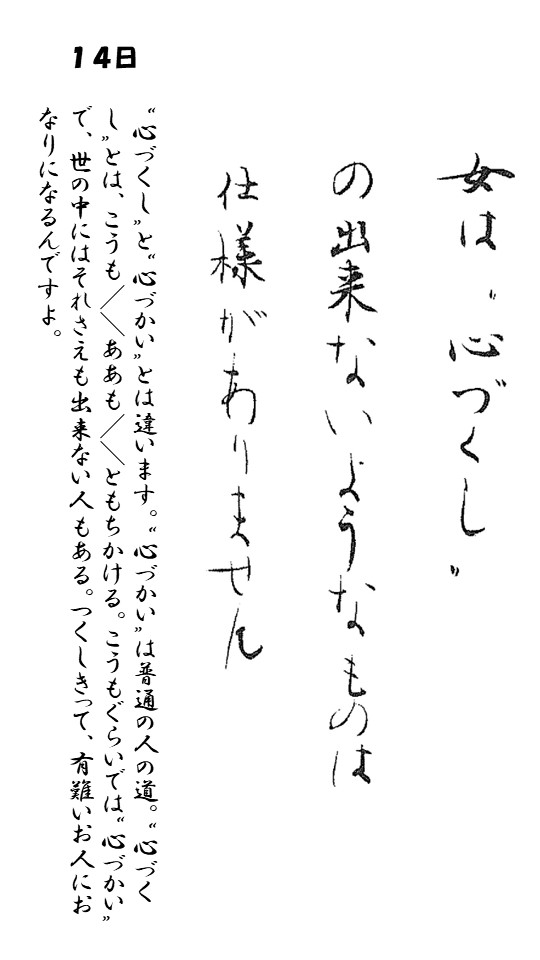 14日
女は〝心づくし〟
の出来ないようなものは
仕様がありません
〝心づくし〟と〝心づかい〟とは違います。〝心づかい〟は普通の人の道。〝心づく
し〟とは、こうも〳〵ああも〳〵ともちかける。こうもぐらいでは〝心づかい〟
で、世の中にはそれさえも出来ない人もある。つくしきって、有難いお人にお
なりになるんですよ。